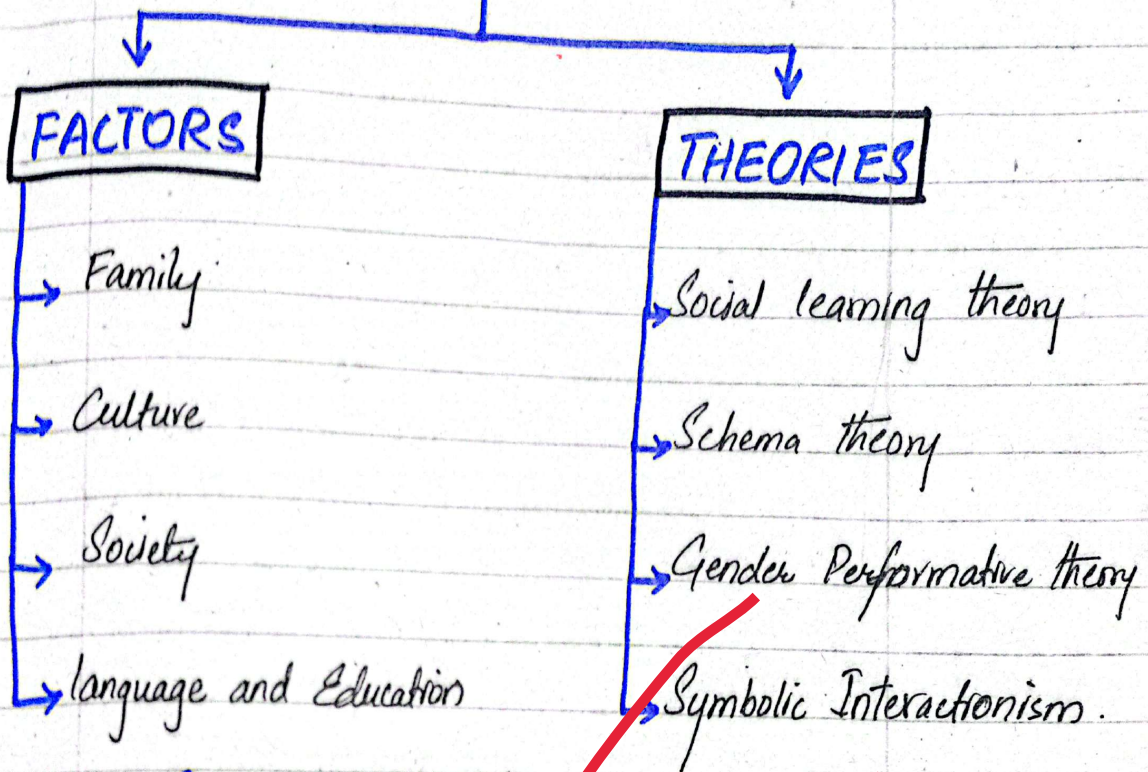 FACTORS
Family
Culture
Society
language and Education
THEORIES
Social learning theory
Schema theory
Gender Performative theory
Symbolic Interactionism.